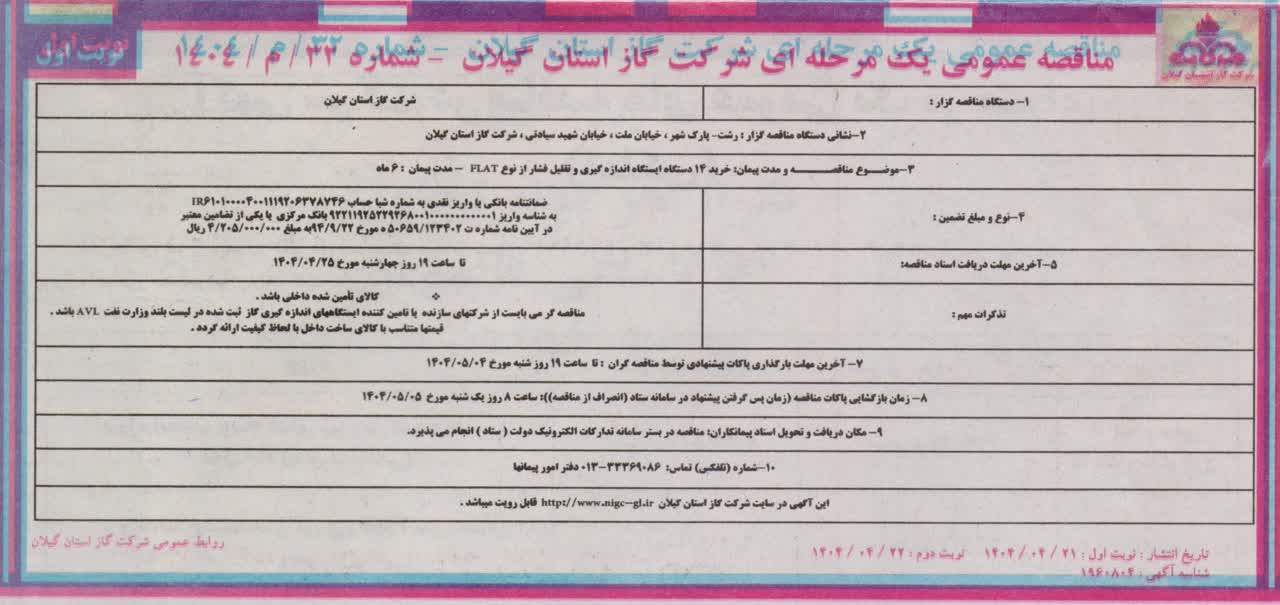 نوبت اول
مناقصه عمومی یک مرحله ای شرکت گاز استان گیلان - شماره ۳۲/م/۱۴۰۴
شرکت گاز استان گیلان
۱- دستگاه مناقصه گزار : شرکت گاز استان گیلان
۲-نشانی دستگاه مناقصه گزار : رشت- پارک شهر ، خیابان ملت ، خیابان شهید سیادتی ، شرکت گاز استان گیلان
۳-موضوع مناقصه و مدت پیمان: خرید ۱۴ دستگاه ایستگاه اندازه گیری و تقلیل فشار از نوع FLAT - مدت پیمان : ۶ ماه
۴-نوع و مبلغ تضمین :
ضمانتنامه بانکی یا واریز نقدی به شماره شبا حساب IR۶۱۰۱۰۰۰۰۴۰۰۱۱۱۹۲۰۶۳۷۸۷۴۶
به شناسه واریز ۹۲۲۱۱۹۲۵۲۲۹۲۶۸۰۰۱۰۰۰۰۰۰۰۰۰۰۰۰۱ بانک مرکزی یا یکی از تضامین معتبر
در آیین نامه شماره ت ۵۰۶۵۹/۱۲۳۴۰۲ ه مورخ ۹۴/۹/۲۲به مبلغ ۴/۲۰۵/۰۰۰/۰۰۰ ریال
۵-آخرین مهلت دریافت اسناد مناقصه: تا ساعت ۱۹ روز چهارشنبه مورخ ۱۴۰۴/۰۴/۲۵
تذکرات مهم :
❖ کالای تأمین شده داخلی باشد .
مناقصه گر می بایست از شرکتهای سازنده یا تامین کننده ایستگاههای اندازه گیری گاز ثبت شده در لیست بلند وزارت نفت AVL باشد .
قیمتها متناسب با کالای ساخت داخل با لحاظ کیفیت ارائه گردد .
۷- آخرین مهلت بارگذاری پاکات پیشنهادی توسط مناقصه گران : تا ساعت ۱۹ روز شنبه مورخ ۱۴۰۴/۰۵/۰۴
۸- زمان بازگشایی پاکات مناقصه (زمان پس گرفتن پیشنهاد در سامانه ستاد (انصراف از مناقصه)): ساعت ۸ روز یک شنبه مورخ ۱۴۰۴/۰۵/۰۵
۹- مکان دریافت و تحویل اسناد پیمانکاران: مناقصه در بستر سامانه تدارکات الکترونیک دولت ( ستاد ) انجام می پذیرد.
۱۰-شماره (تلفکس) تماس: ۳۳۳۶۹۰۸۶-۰۱۳ دفتر امور پیمانها
این آگهی در سایت شرکت گاز استان گیلان http://www.nigc-gl.ir قابل رویت میباشد .
تاریخ انتشار : نوبت اول : ۱۴۰۴/۰۴/۲۱ نوبت دوم : ۱۴۰۴/۰۴/۲۲
روابط عمومی شرکت گاز استان گیلان
شناسه آگهی : ۱۹۶۰۸۰۴